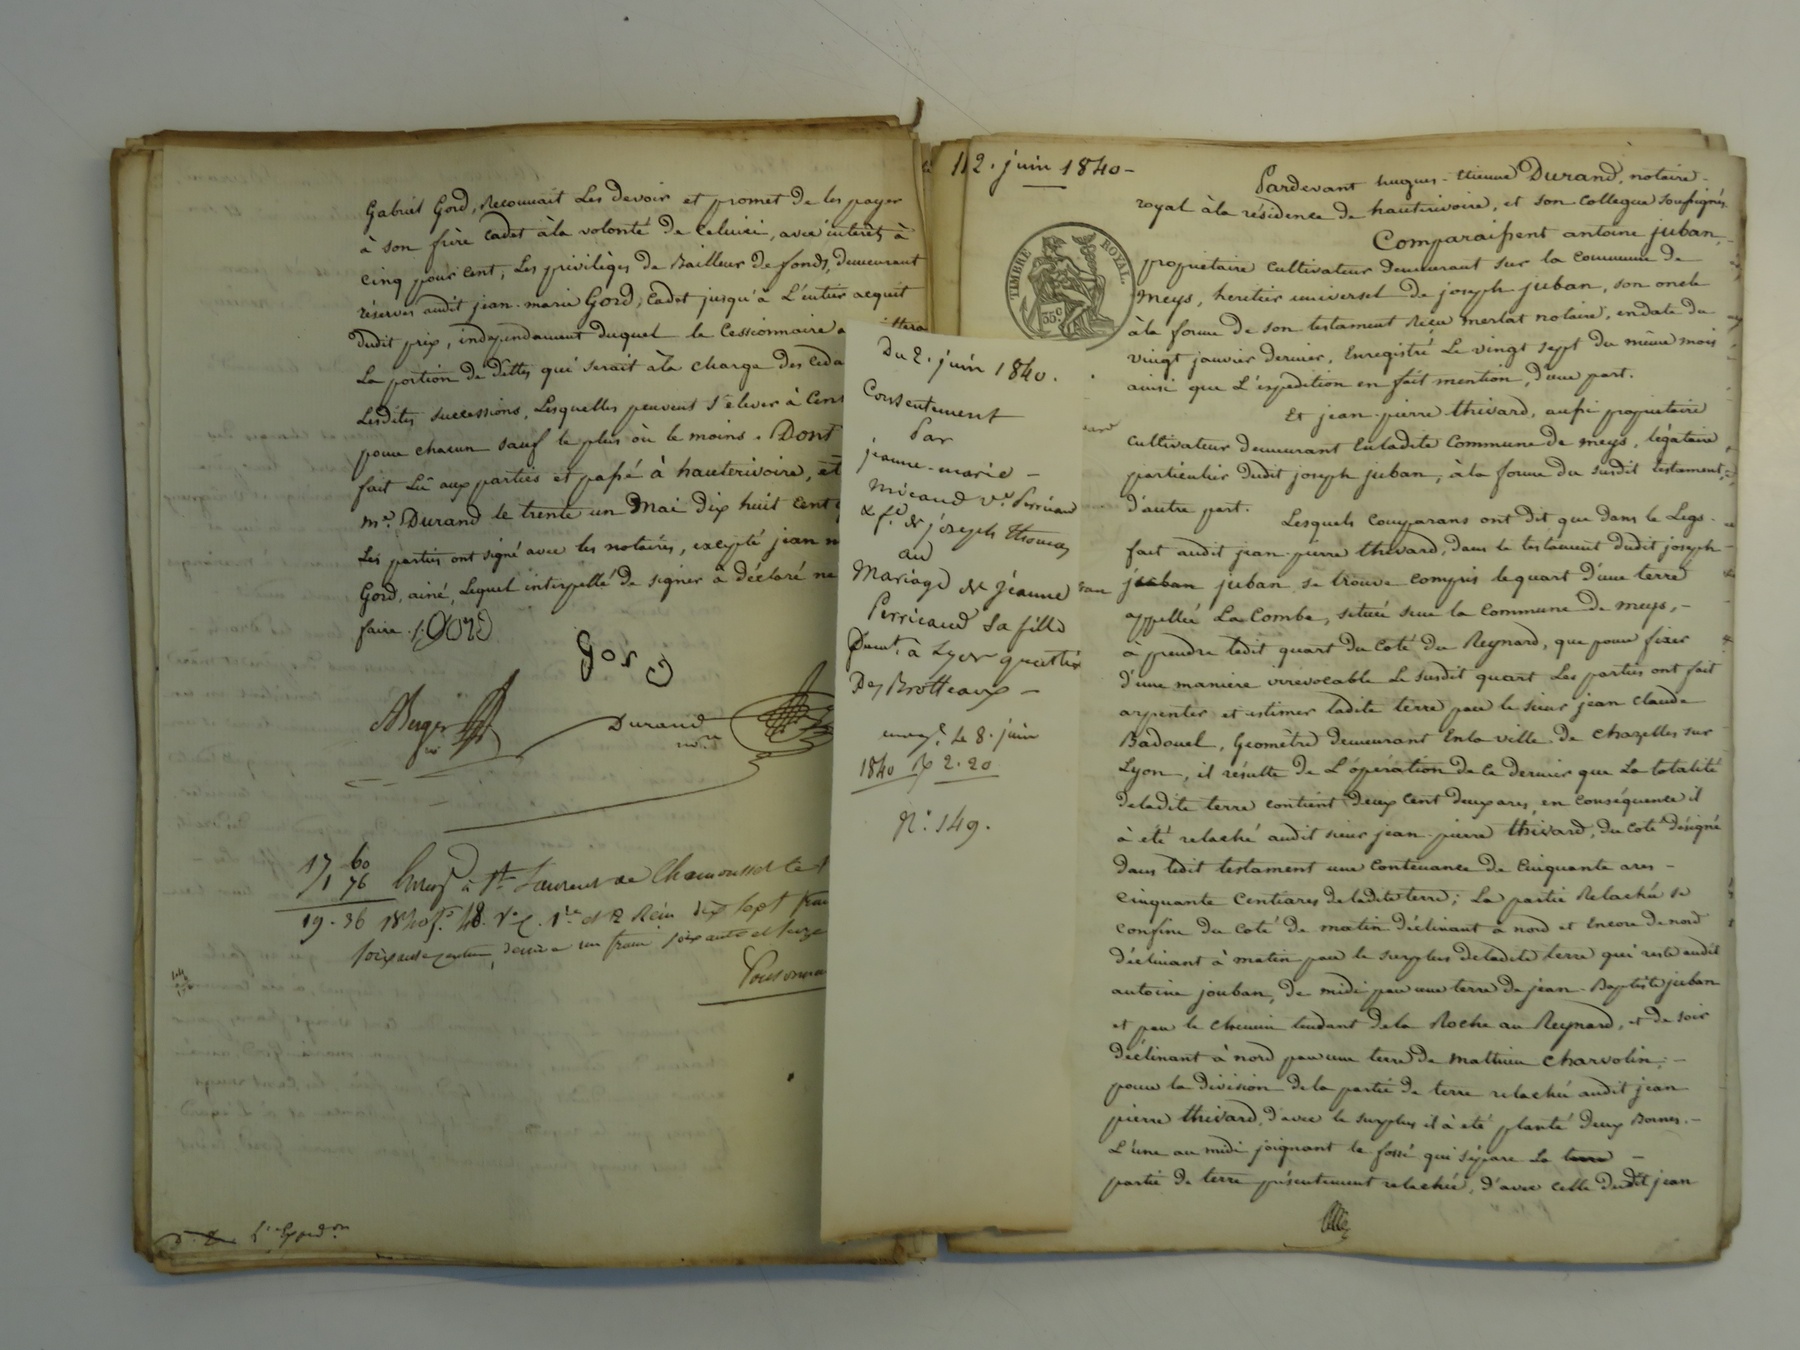 Gabriel Gord, Reconnait Les devoir et promet de les payer
à son frère cadet à la volonté de celuici, avec interêts à
cinq pour cent, Les privilèges de Bailleur de fonds, demeurant
réservés audit jean-marie Gord, Cadet jusqu'à L'entier acquit
dudit prix, indépendament duquel le Cessionnaire
La portion de dettes qui serait à la charge des
Lesdites successions, Lesquelles peuvent s'élever à Cent
pour chacun sauf le plus où le moins. Dont
fait Lû aux parties et passé à hauterivoire, et
me. Durand le trente un Mai dix huit cent
Les parties ont signé avec les notaires, excepté jean
Gord, ainé, Lequel interpellé de signer a déclaré ne
faire ./. Gord
Gord
Berger
Durand
nre
17 60
1 76
19 . 36
Enreg à St Laurent de Chamousset le
1840 fo 48. Vo C. 1re et 2 Reçu dix sept fran
soixante centimes, decime un franc soixante et seize
L'Exped.on
Du 2. juin 1840.
Consentement
Par
jeanne-marie -
Micaud Ve. Perricaud
& fe. de joseph Thomas
au
Mariage de jeanne
Perricaud Sa fille
Demt. à Lyon quartier
Des Brotteaux -
enreg. le 8. juin
1840 R 2.20
N.o 149.
12. juin 1840-
TIMBRE ROYAL
35 c
Pardevant hugues-Etienne Durand, notaire
royal à la résidence de hauterivoire, et son collegue soussignés
Comparaissent antoine juban,
propriétaire cultivateur demeurant sur la commune de
Meys, heritier universel de joseph juban, son oncle
à la forme de son testament Reçu merlat notaire, en date du
vingt janvier dernier, Enregistré Le vingt sept du même mois
ainsi que L'expedition en fait mention, d'une part.
Et jean-pierre thivard, aussi propriétaire
cultivateur demeurant En ladite Commune de meys, légataire
particulier dudit joseph juban, à la forme du susdit testament,
d'autre part.
Lesquels comparans ont dit que dans le Legs
fait audit jean-pierre thivard, dans le testament dudit joseph
juban juban se trouve compris le quart d'une terre
appellée La Combe, située sur la Commune de meys, -
à prendre ledit quart du Coté du Reynard, que pour fixer
d'une manière irrévocable Le susdit quart Les parties ont fait
arpenter et estimer ladite terre par le sieur jean claude
Badouel, Géomètre demeurant En la ville de chazelles sur
Lyon, il résulte de L'opération de ce dernier que La totalité
de ladite terre contient deux cent deux ares, en conséquence il
à été relaché audit sieur jean-pierre thivard, du coté désigné
dans ledit testament une Contenance de Cinquante ares -
cinquante Centiares de ladite terre; La partie Relachée se
confine du Coté de matin déclinant à nord et Encore de nord
déclinant à matin par le surplus de ladite terre qui reste audit
antoine jouban, de midi par une terre de jean-Baptiste juban
et par le chemin tendant de la Roche au Reynard, et de soir
déclinant à nord par une terre de mathieu charvolin; -
pour la division de la partie de terre relachée audit jean
pierre thivard, d'avec le surplus il à été planté deux Bornes. -
L'une au midi joignant le fossé qui sépare La terre -
partie de terre présentement relachée, d'avec celle dudit jean